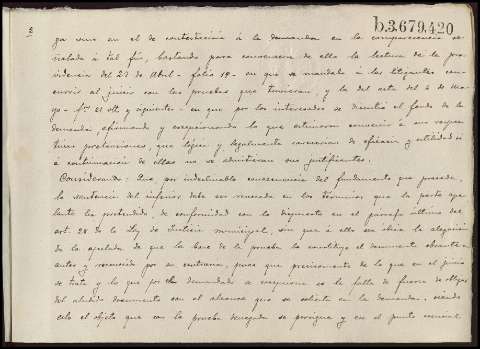 2
b.3.679.420
ga sino en el de contestación á la demanda en la comparecencia se-
ñalada á tal fin, bastando para convencerse de ello la lectura de la pro-
videncia del 27 de Abril - folio 19 - en que se mandaba á los litigantes con-
currir al juicio con las pruebas que tuvieran, y la del acta del 4 de Ma-
yo - fº 21 vtº y siguientes - en que por los interesados se discutió el fondo de la
demanda, afirmando y excepcionando lo que estimaron convenir á sus respec-
tivas pretensiones, que lógica y legalmente carecerían de eficacia y utilidad si
á continuación de ellas no se admitieran sus justificantes.
Considerando: Que, por indeclinable consecuencia del fundamento que precede,
la sentencia del inferior debe ser revocada en los términos que la parte ape-
lante ha pretendido, de conformidad con lo dispuesto en el párrafo último del
art. 28 de la Ley de Justicia municipal, sin que á ello sea óbice la alegación
de la apelada de que la base de la prueba la constituye el documento obrante en
autos y reconocido por su contrario, pues que precisamente de lo que en el juicio
se trata y lo que por el demandado se excepciona es la falta de fuerza de obligar
del aludido documento con el alcance que se solicita en la demanda, siendo
ello el objeto que con la prueba denegada se persigue y es el punto esencial